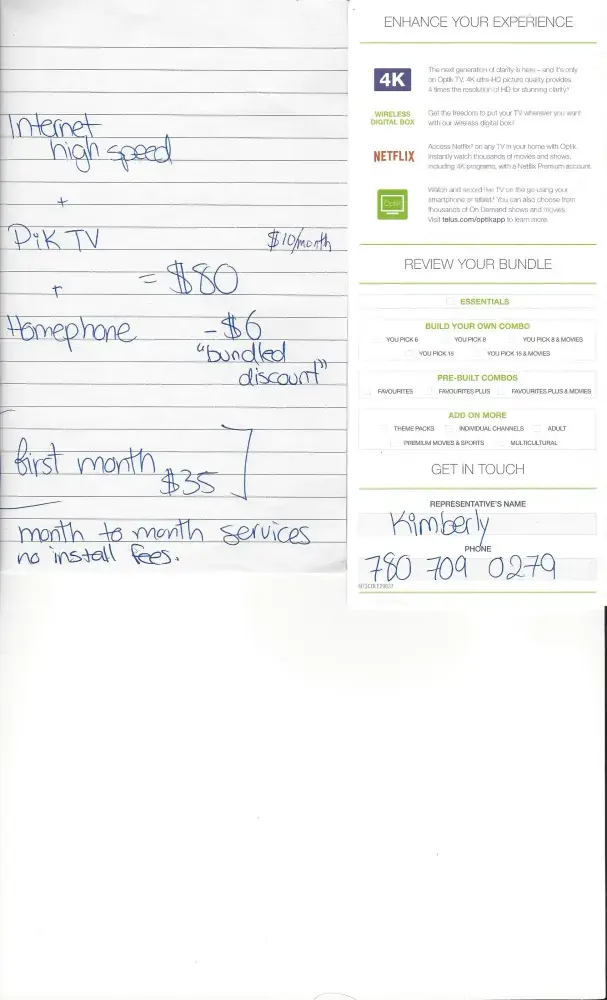 Internet
high speed
+
PiK TV $10/month
+ = $80
Homephone - $6
"bundled
discount"
first month
$35
month to month services
no install fees.
ENHANCE YOUR EXPERIENCE
4K
The next generation of clarity is here – and it's only
on Optik TV. 4K ultra-HD picture quality provides
4 times the resolution of HD for stunning clarity.
WIRELESS
DIGITAL BOX
Get the freedom to put your TV wherever you want
with our wireless digital box.
NETFLIX
Access Netflix on any TV in your home with Optik.
Instantly watch thousands of movies and shows,
including 4K programs, with a Netflix Premium account.
Optik
Watch and record live TV on the go using your
smartphone or tablet. You can also choose from
thousands of On Demand shows and movies.
Visit telus.com/optikapp to learn more.
REVIEW YOUR BUNDLE
ESSENTIALS
BUILD YOUR OWN COMBO
YOU PICK 6 YOU PICK 8 YOU PICK 8 & MOVIES
YOU PICK 15 YOU PICK 15 & MOVIES
PRE-BUILT COMBOS
FAVOURITES FAVOURITES PLUS FAVOURITES PLUS & MOVIES
ADD ON MORE
THEME PACKS INDIVIDUAL CHANNELS ADULT
PREMIUM MOVIES & SPORTS MULTICULTURAL
GET IN TOUCH
REPRESENTATIVE'S NAME
Kimberly
PHONE
780 709 0279